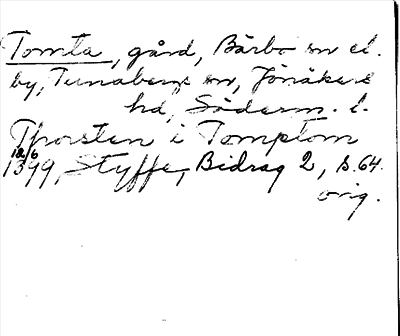 Tomta, gård, Bärbo sn el.
by, Tunabergs sn, Jönåkers
hd, Söderm. l.
Thorsten i Tomptom
12/6
1399, Styffe, Bidrag 2, s. 64.
orig.